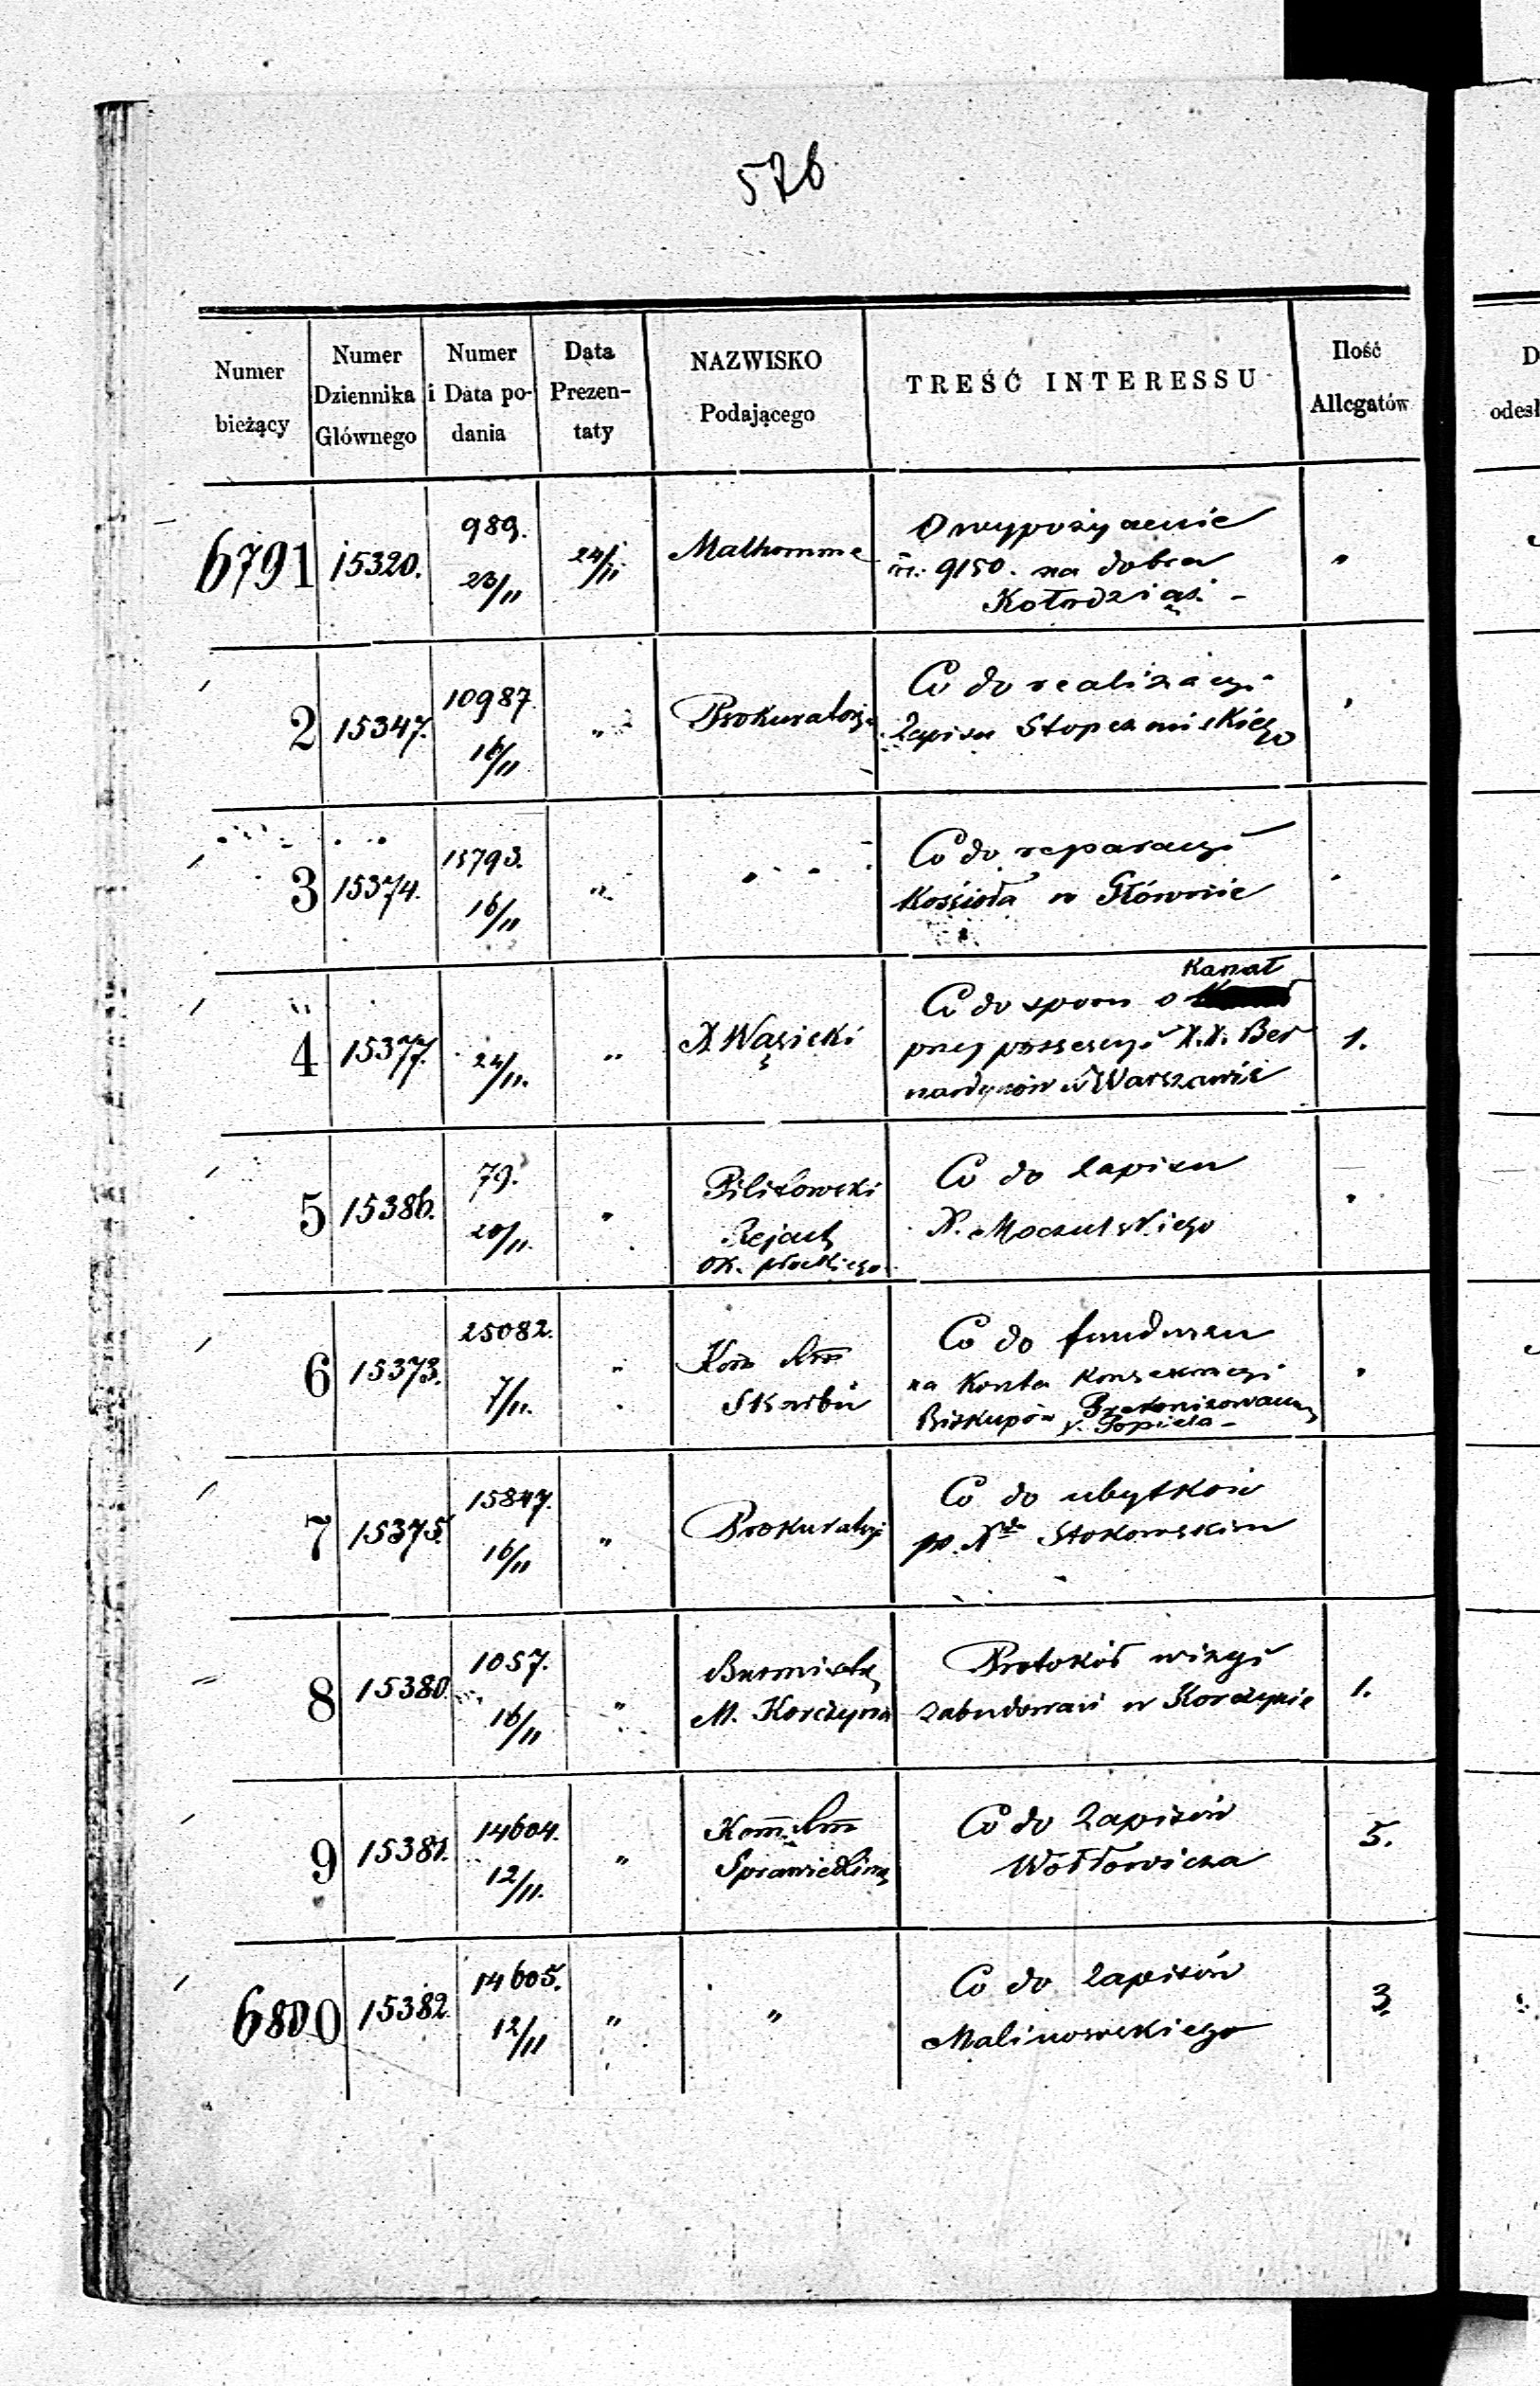 576
Numer bieżący | Numer Dziennika Głównego | Numer i Data podania | Data Prezentaty | NAZWISKO Podającego | TREŚĆ INTERESSU | Ilość Allegatów
6791 | 15320. | 989. 23/11 | 24/11 | Malhomme | O wypożyczenie
9150. na dobra
Kołodziąż. | "
2 | 15347. | 10987. 16/11 | " | Prokuratorya | Co do realizacyi
Zapisu Stopczańskiego | "
3 | 15374. | 15793. 16/11 | " | " | Co do reparacyi
Kościoła w Głównie | "
4 | 15377. | 24/11. | " | X Wąsicki | Co do sporu o Kanał
przy possessyi X.X. Ber
nardynów w Warszawie | 1.
5 | 15386. | 79. 20/11. | " | Pilitowski
Rejent
Ok. płockiego | Co do Zapisu
X. Moczulskiego | "
6 | 15373. | 25082. 7/11. | " | Kom
Skarbu | Co do funduszu
na Koszta Konsekracyi
Biskupów Prekonizowanych
Popiela | "
7 | 15375. | 15847. 16/11 | " | Prokuratorya | Co do ubytków
po Xdzu Stokowskim
8 | 15380. | 1057. 16/11 | " | Burmistrz
M. Korczyna | Protokół wizyi
zabudowań w Korczynie | 1.
9 | 15381. | 14604. 12/11. | " | Komm
Sprawiedliw | Co do Zapisów
Wołłowicza | 5.
6800 | 15382. | 14605. 12/11 | " | " | Co do Zapisów
Malinowskiego | 3
odesł